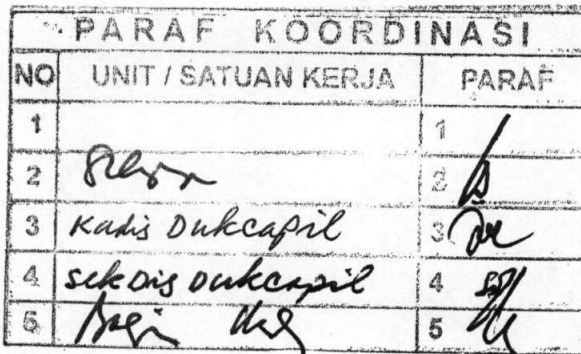 PARAF KOORDINASI
NO UNIT / SATUAN KERJA PARAF
1 1
2 2
3 Kadis Dukcapil 3
4 sekDis Dukcapil 4
5 5